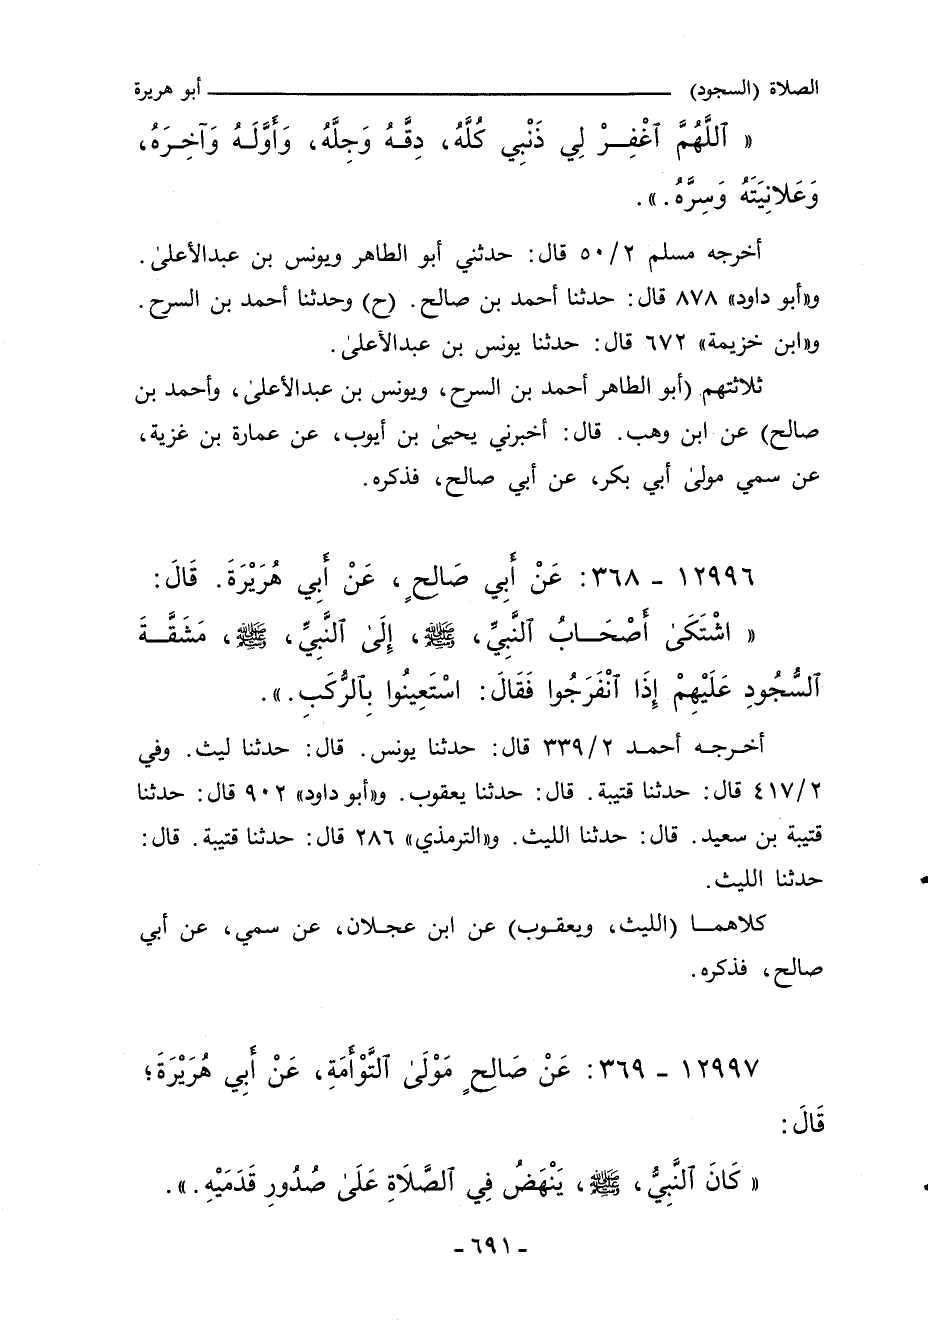 الصلاة (السجود) ــــــــــــــــــــــــــــــــ أبو هريرة
« ٱللَّهُمَّ ٱغْفِـرْ لِي ذَنْبِي كُلَّهُ، دِقَّـهُ وَجِلَّهُ، وَأَوَّلَـهُ وَآخِـرَهُ،
وَعَلَانِيَتَهُ وَسِرَّهُ.».
أخرجه مسلم ٥٠/٢ قال: حدثني أبو الطاهر ويونس بن عبدالأعلىٰ.
و«أبو داود» ٨٧٨ قال: حدثنا أحمد بن صالح. (ح) وحدثنا أحمد بن السرح.
و«ابن خزيمة» ٦٧٢ قال: حدثنا يونس بن عبدالأعلىٰ.
ثلاثتهم (أبو الطاهر أحمد بن السرح، ويونس بن عبدالأعلىٰ، وأحمد بن
صالح) عن ابن وهب. قال: أخبرني يحيىٰ بن أيوب، عن عمارة بن غزية،
عن سمي مولىٰ أبي بكر، عن أبي صالح، فذكره.
١٢٩٩٦ - ٣٦٨: عَنْ أَبِي صَالِحٍ، عَنْ أَبِي هُرَيْرَةَ. قَالَ:
« اشْتَكَىٰ أَصْحَـابُ ٱلنَّبِيِّ، ﷺ، إِلَىٰ ٱلنَّبِيِّ، ﷺ، مَشَقَّـةَ
ٱلسُّجُودِ عَلَيْهِمْ إِذَا ٱنْفَرَجُوا فَقَالَ: اسْتَعِينُوا بِٱلرُّكَبِ.».
أخـرجـه أحمـد ٣٣٩/٢ قال: حدثنا يونس. قال: حدثنا ليث. وفي
٤١٧/٢ قال: حدثنا قتيبة. قال: حدثنا يعقوب. و«أبو داود» ٩٠٢ قال: حدثنا
قتيبة بن سعيد. قال: حدثنا الليث. و«الترمذي» ٢٨٦ قال: حدثنا قتيبة. قال:
حدثنا الليث.
كلاهمـا (الليث، ويعقـوب) عن ابن عجـلان، عن سمي، عن أبي
صالح، فذكره.
١٢٩٩٧ - ٣٦٩: عَنْ صَالِحٍ مَوْلَىٰ ٱلتَّوْأَمَةِ، عَنْ أَبِي هُرَيْرَةَ؛
قَالَ:
« كَانَ ٱلنَّبِيُّ، ﷺ، يَنْهَضُ فِي ٱلصَّلَاةِ عَلَىٰ صُدُورِ قَدَمَيْهِ.».
- ٦٩١ -